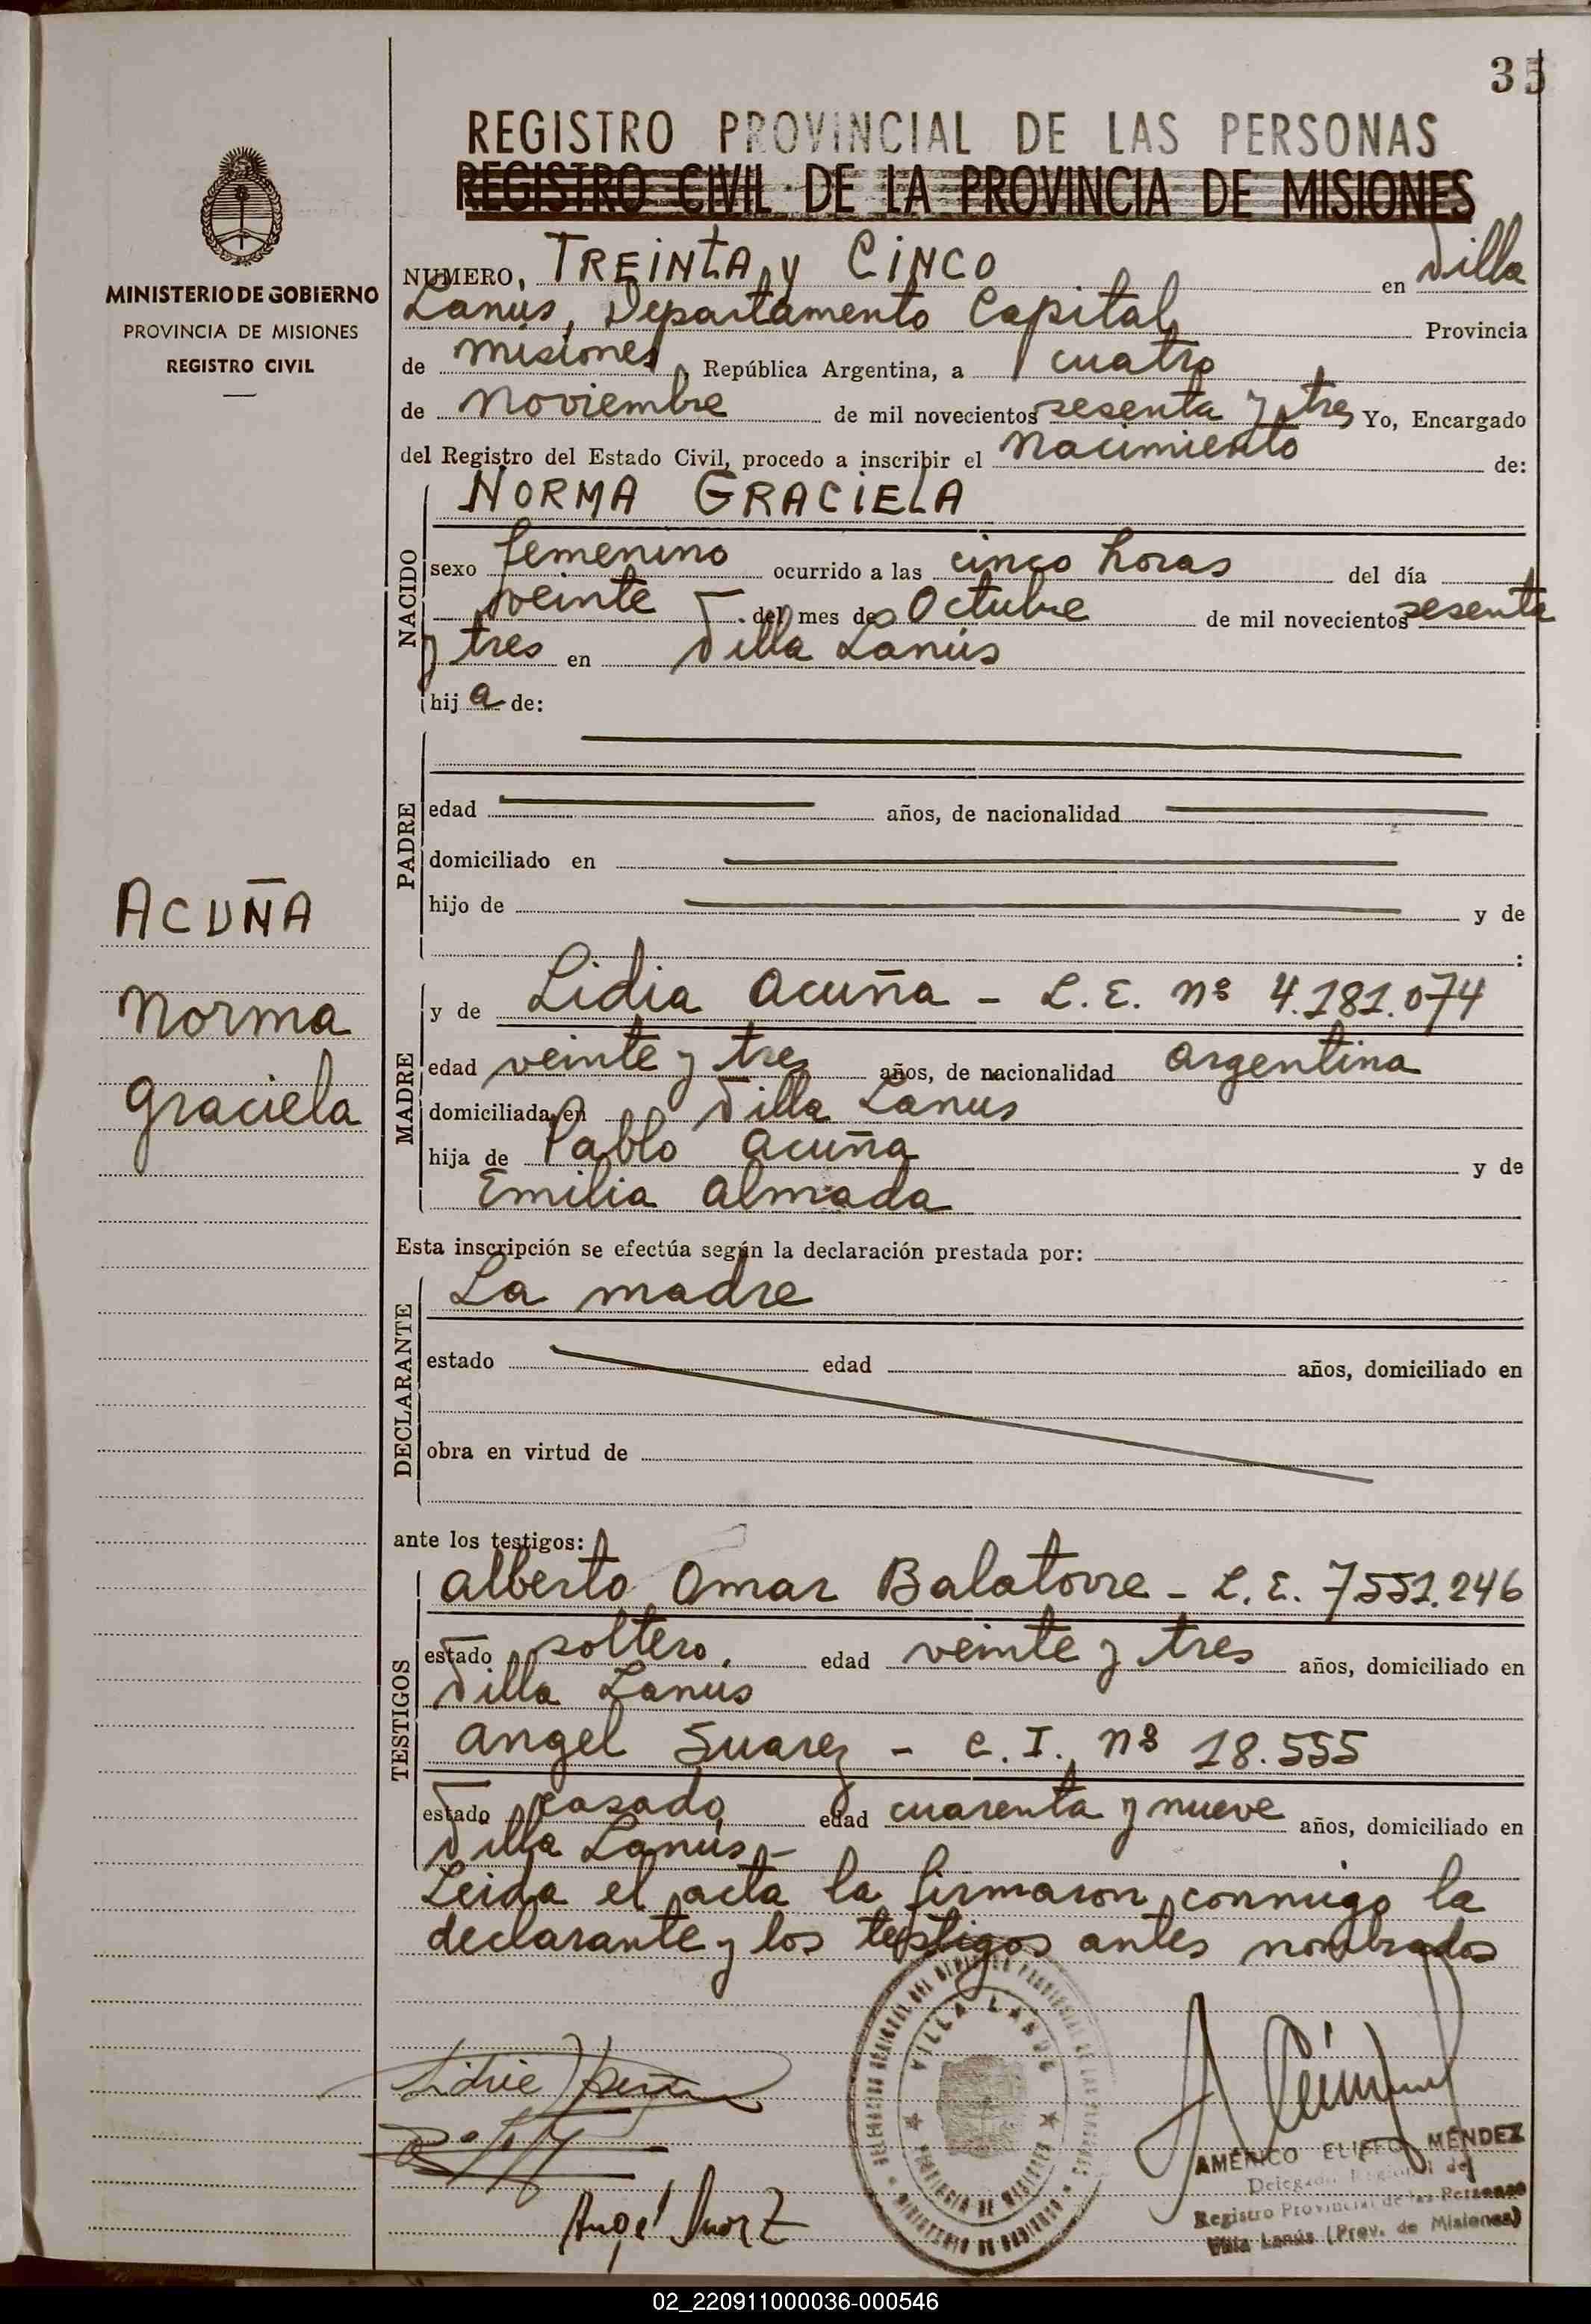 35
REGISTRO PROVINCIAL DE LAS PERSONAS
REGISTRO CIVIL DE LA PROVINCIA DE MISIONES
MINISTERIO DE GOBIERNO
PROVINCIA DE MISIONES
REGISTRO CIVIL
NUMERO, TREINTA y CINCO en Villa
Lanús, Departamento Capital Provincia
de Misiones, República Argentina, a cuatro
de Noviembre de mil novecientos sesenta y tres Yo, Encargado
del Registro del Estado Civil, procedo a inscribir el Nacimiento de:
NACIDO
NORMA GRACIELA
sexo femenino ocurrido a las cinco horas del día
veinte del mes de Octubre de mil novecientos sesenta
y tres en Villa Lanús
hij a de:
PADRE
edad años, de nacionalidad
domiciliado en
hijo de y de
:
ACUÑA
Norma
Graciela
MADRE
y de Lidia Acuña - L.E. nº 4.181.074
edad veinte y tres años, de nacionalidad Argentina
domiciliada en Villa Lanus
hija de Pablo Acuña y de
Emilia Almada
Esta inscripción se efectúa según la declaración prestada por:
DECLARANTE
La madre
estado edad años, domiciliado en
obra en virtud de
ante los testigos:
TESTIGOS
Alberto Omar Balatorre - L.E. 7551.246
estado soltero, edad veinte y tres años, domiciliado en
Villa Lanus
Angel Suarez - C.I. nº 18.555
estado casado edad cuarenta y nueve años, domiciliado en
Villa Lanús -
Leida el acta la firmaron conmigo la
declarante y los testigos antes nombrados
VILLA LANUS
PROVINCIA DE MISIONES
MINISTERIO DE GOBIERNO
AMÉRICO MÉNDEZ
Delegado Regional del
Registro Provincial de las Personas
Villa Lanús (Prov. de Misiones)
02_220911000036-000546